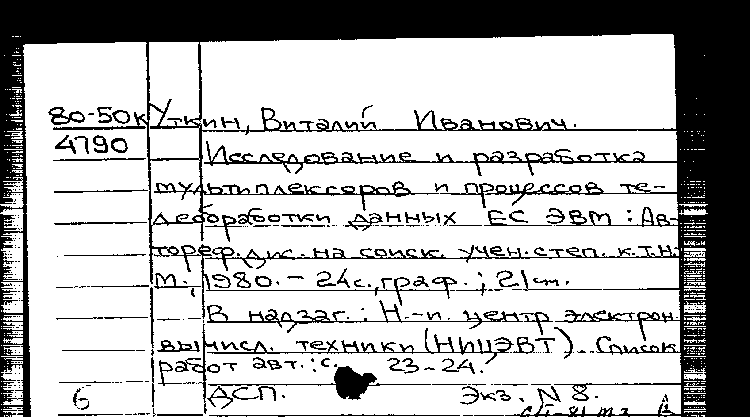 80-50к Уткин, Виталий Иванович.
4790 Исследование и разработка
мультиплексоров и процессов те-
леобработки данных ЕС ЭВМ : Ав-
тореф. дис. на соиск. учен. степ. к.т.н.
М., 1980. - 24 с., граф. ; 21 см.
В надзаг. : Н.-и. центр электрон.
вычисл. техники (НИЦЭВТ). Список
работ авт. : с. 23-24.
6 ДСП. Экз. N 8.